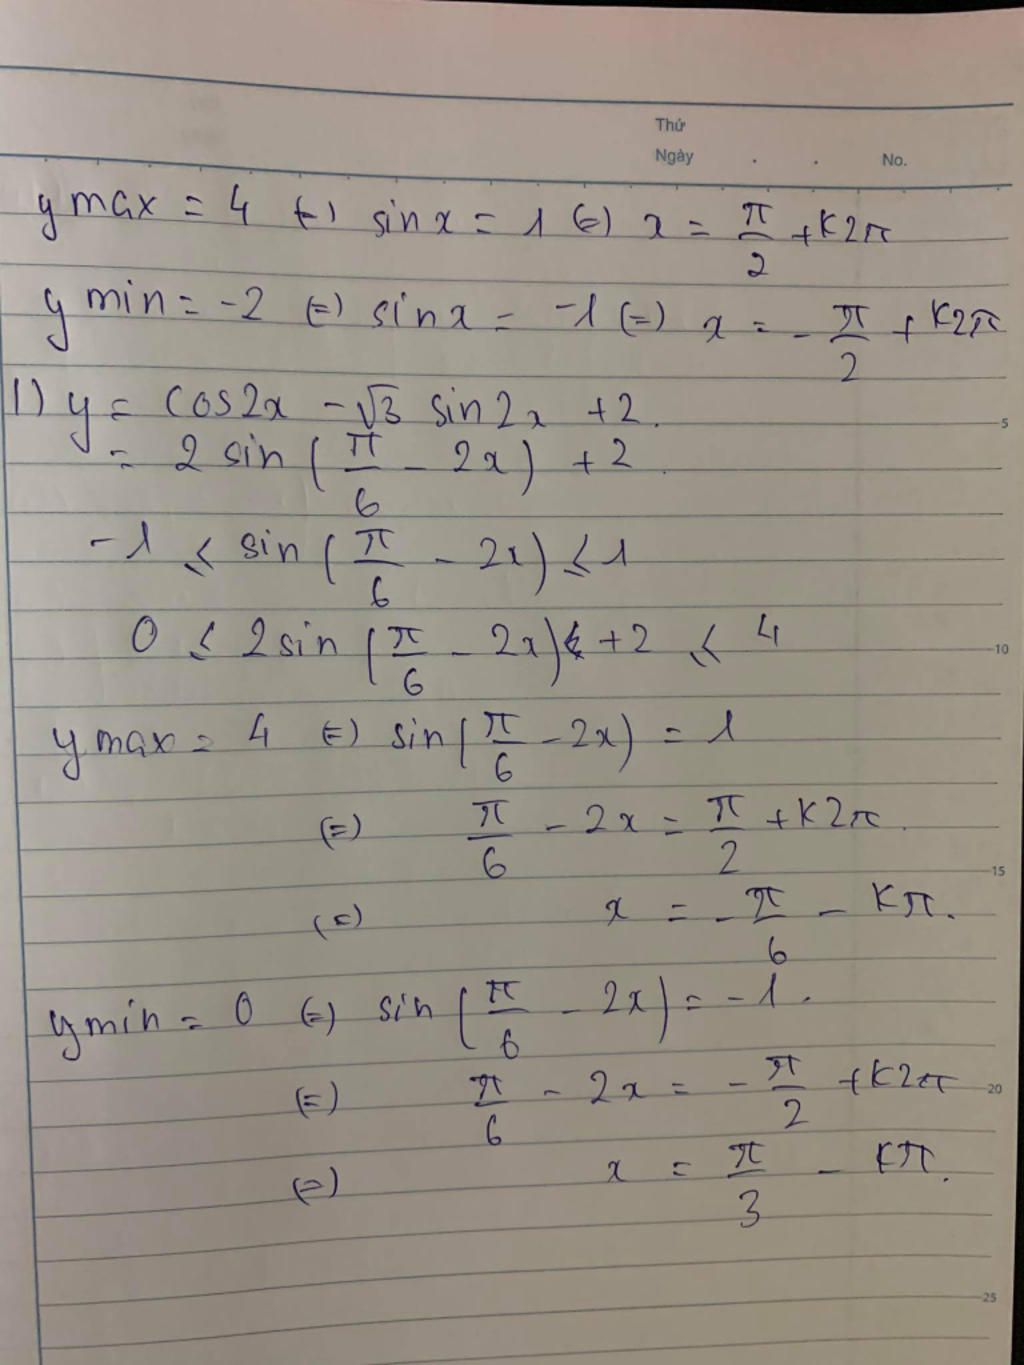 Thứ
Ngày . . No.
y max = 4 (=) sin x = 1 (=) x = π/2 + k2π
y min = -2 (=) sin x = -1 (=) x = -π/2 + k2π
1) y = cos2x - √3 sin2x + 2.
= 2 sin (π/6 - 2x) + 2
-1 ≤ sin (π/6 - 2x) ≤ 1
0 ≤ 2sin (π/6 - 2x) + 2 ≤ 4
y max = 4 (=) sin (π/6 - 2x) = 1
(=) π/6 - 2x = π/2 + k2π.
(=) x = -π/6 - kπ.
y min = 0 (=) sin (π/6 - 2x) = -1.
(=) π/6 - 2x = -π/2 + k2π
(=) x = π/3 - kπ.
5
10
15
20
25